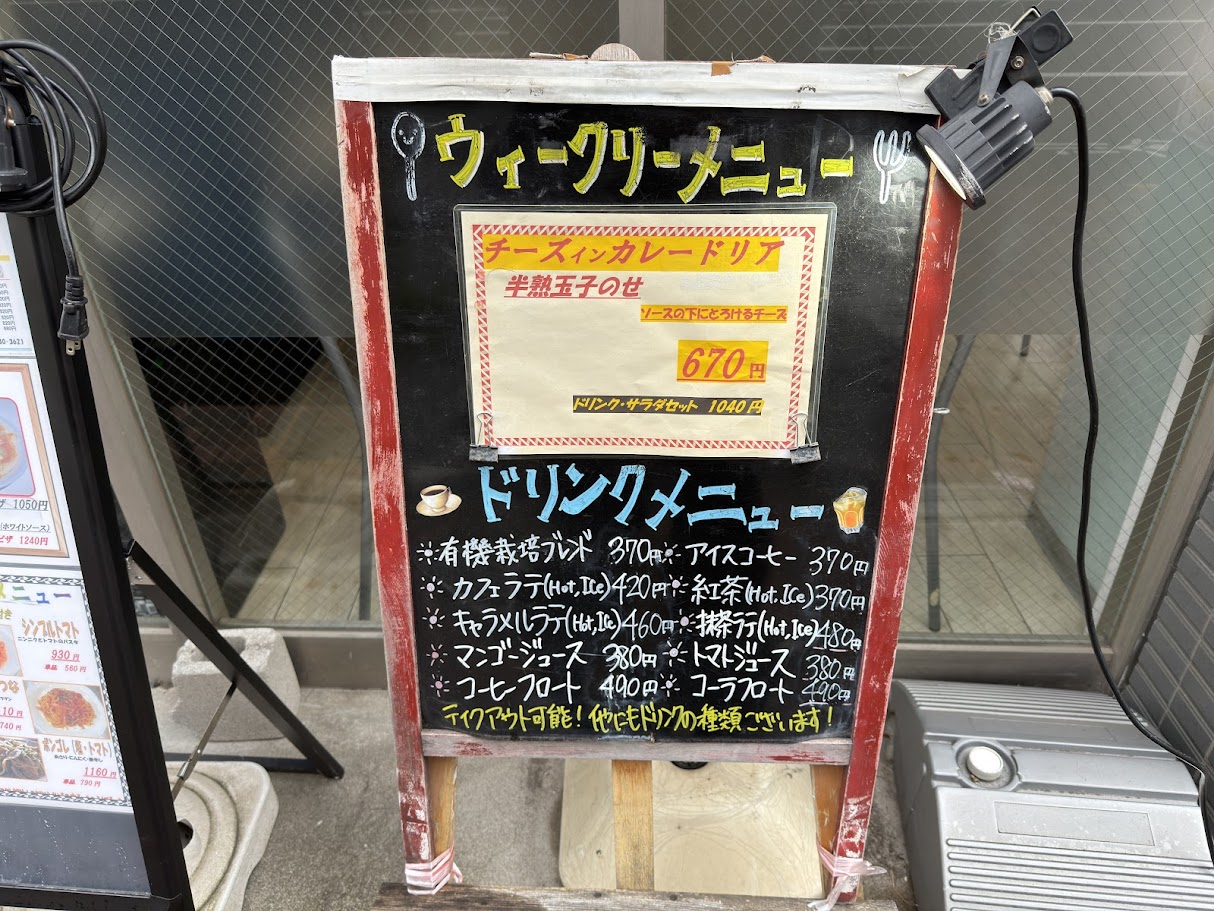 ウィークリーメニュー
チーズインカレードリア
半熟玉子のせ
ソースの下にとろけるチーズ
670円
ドリンク・サラダセット 1040円
ドリンクメニュー
有機栽培ブレンド 370円 アイスコーヒー 370円
カフェラテ(Hot,Ice) 420円 紅茶(Hot,Ice) 370円
キャラメルラテ(Hot,Ice) 460円 抹茶ラテ(Hot,Ice) 480円
マンゴージュース 380円 トマトジュース 380円
コーヒーフロート 490円 コーラフロート 490円
テイクアウト可能! 他にもドリンクの種類ございます!
1050円
(ホワイトソース)
ピザ 1240円
メニュー
シンプルトマト
ニンニクとトマトのパスタ
930円
単品 580円
740円
ボンゴレ
1160円
単品 790円